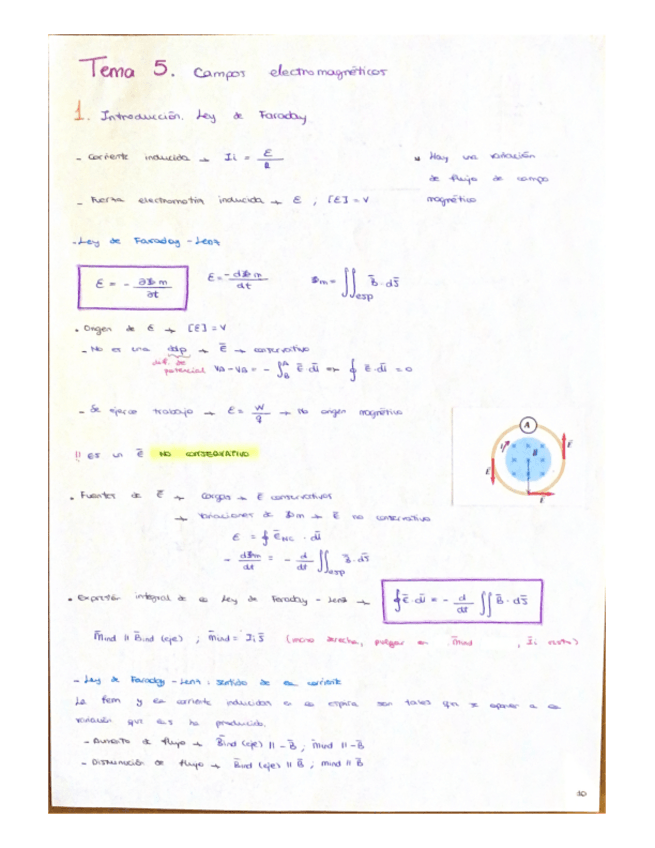 Tema 5. Campos electromagnéticos
1. Introducción. Ley de Faraday
- Corriente inducida → Ii = ε/R
• Hay una variación de flujo de campo magnético
- Fuerza electromotriz inducida → ε, [ε] = V
- Ley de Faraday - Lenz
ε = - ∂Φm/∂t
ε = -dΦm/dt
Φm = ∬esp B̄ · ds̄
• Origen de ε → [ε] = V
- No es una ddp → Ē → conservativo
dif. de potencial
VA - VB = - ∫ᴬB Ē · dl̄ ⇔ ∮ Ē · dl̄ = 0
- Se ejerce trabajo → ε = W/q → No origen magnético
A
I
B
E
E
E
!! Es un Ē NO CONSERVATIVO
• Fuentes de Ē → Cargas → Ē conservativos
→ Variaciones de Φm → Ē no conservativo
ε = ∮ ĒNC · dl̄
- dΦm/dt = - d/dt ∬esp B̄ · ds̄
• Expresión integral de la Ley de Faraday - Lenz →
∮ Ē · dl̄ = - d/dt ∬ B̄ · ds̄
m̄ind || B̄ind (eje) ; m̄ind = Ii s̄ (mano derecha, pulgar en m̄ind , Ii resto)
- Ley de Faraday - Lenz : sentido de la corriente
La fem y la corriente inducidas en la espira son tales que se oponen a la
variación que las ha producido.
- Aumento de flujo → B̄ind (eje) || -B̄ ; m̄ind || -B̄
- Disminución de flujo → B̄ind (eje) || B̄ ; mind || B̄